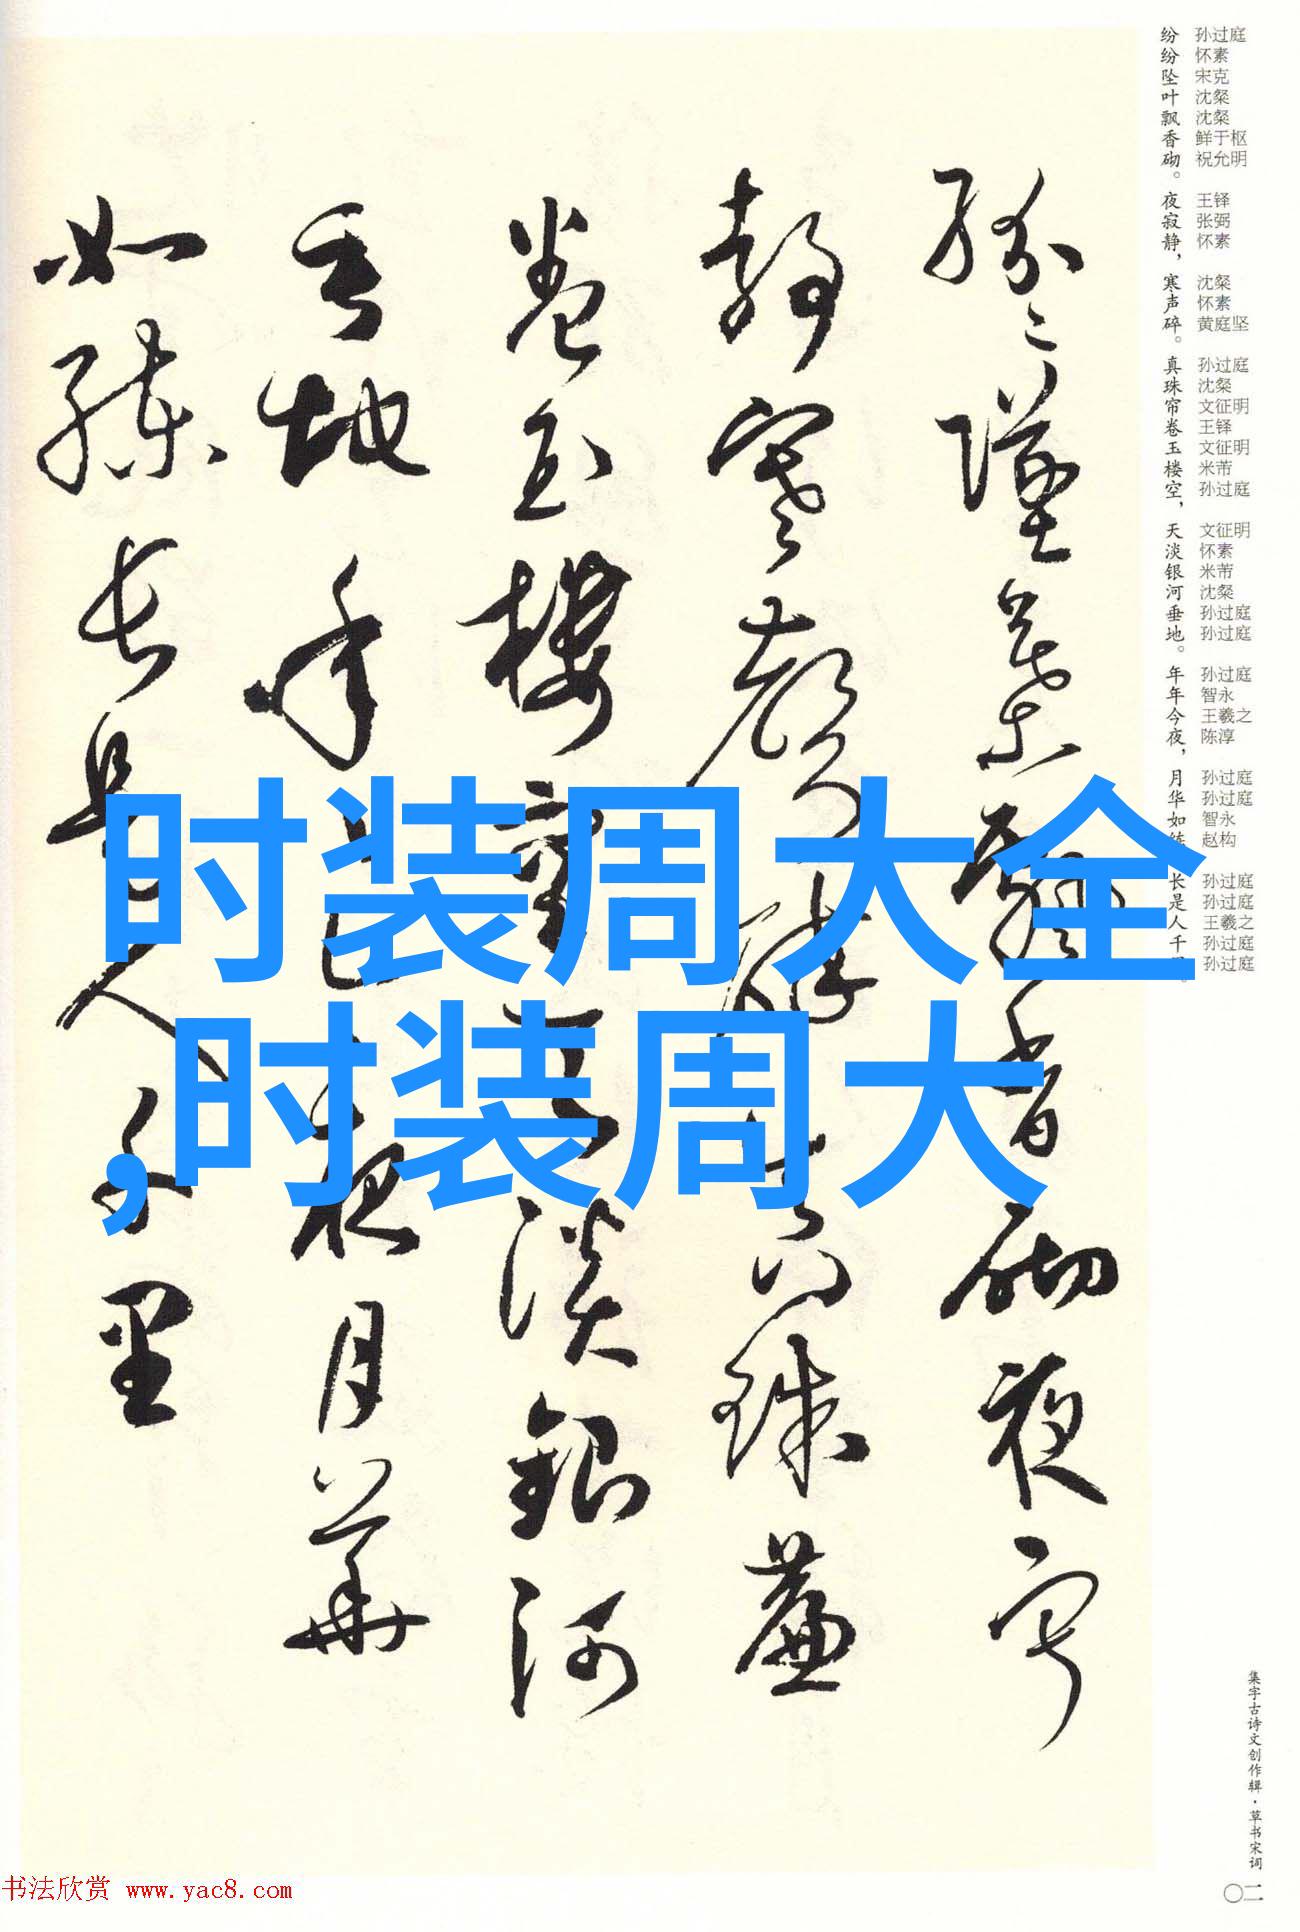 纷纷坠叶飘香砌夜寂
静寒声碎真珠帘
卷玉楼空天淡银河
垂地年年今夜月华
如练长是人千里
时装周大全
,时装周大
纷 孙过庭
纷 怀素
坠 宋克
叶 沈粲
飘 沈粲
香 鲜于枢
砌。 祝允明
夜 王铎
寂 张弼
静， 怀素
寒 沈粲
声 怀素
碎。 黄庭坚
真 孙过庭
珠 沈粲
帘 文征明
卷 王铎
玉 文征明
楼 米芾
空， 孙过庭
天 文征明
淡 怀素
银 米芾
河 沈粲
垂 孙过庭
地。 孙过庭
年 孙过庭
年 智永
今 王羲之
夜， 陈淳
月 孙过庭
华 孙过庭
如 智永
练 赵构
长 孙过庭
是 孙过庭
人 王羲之
千 孙过庭
孙过庭
集字古诗文创作辑·草书宋词
〇二
书法欣赏 www.yac8.com